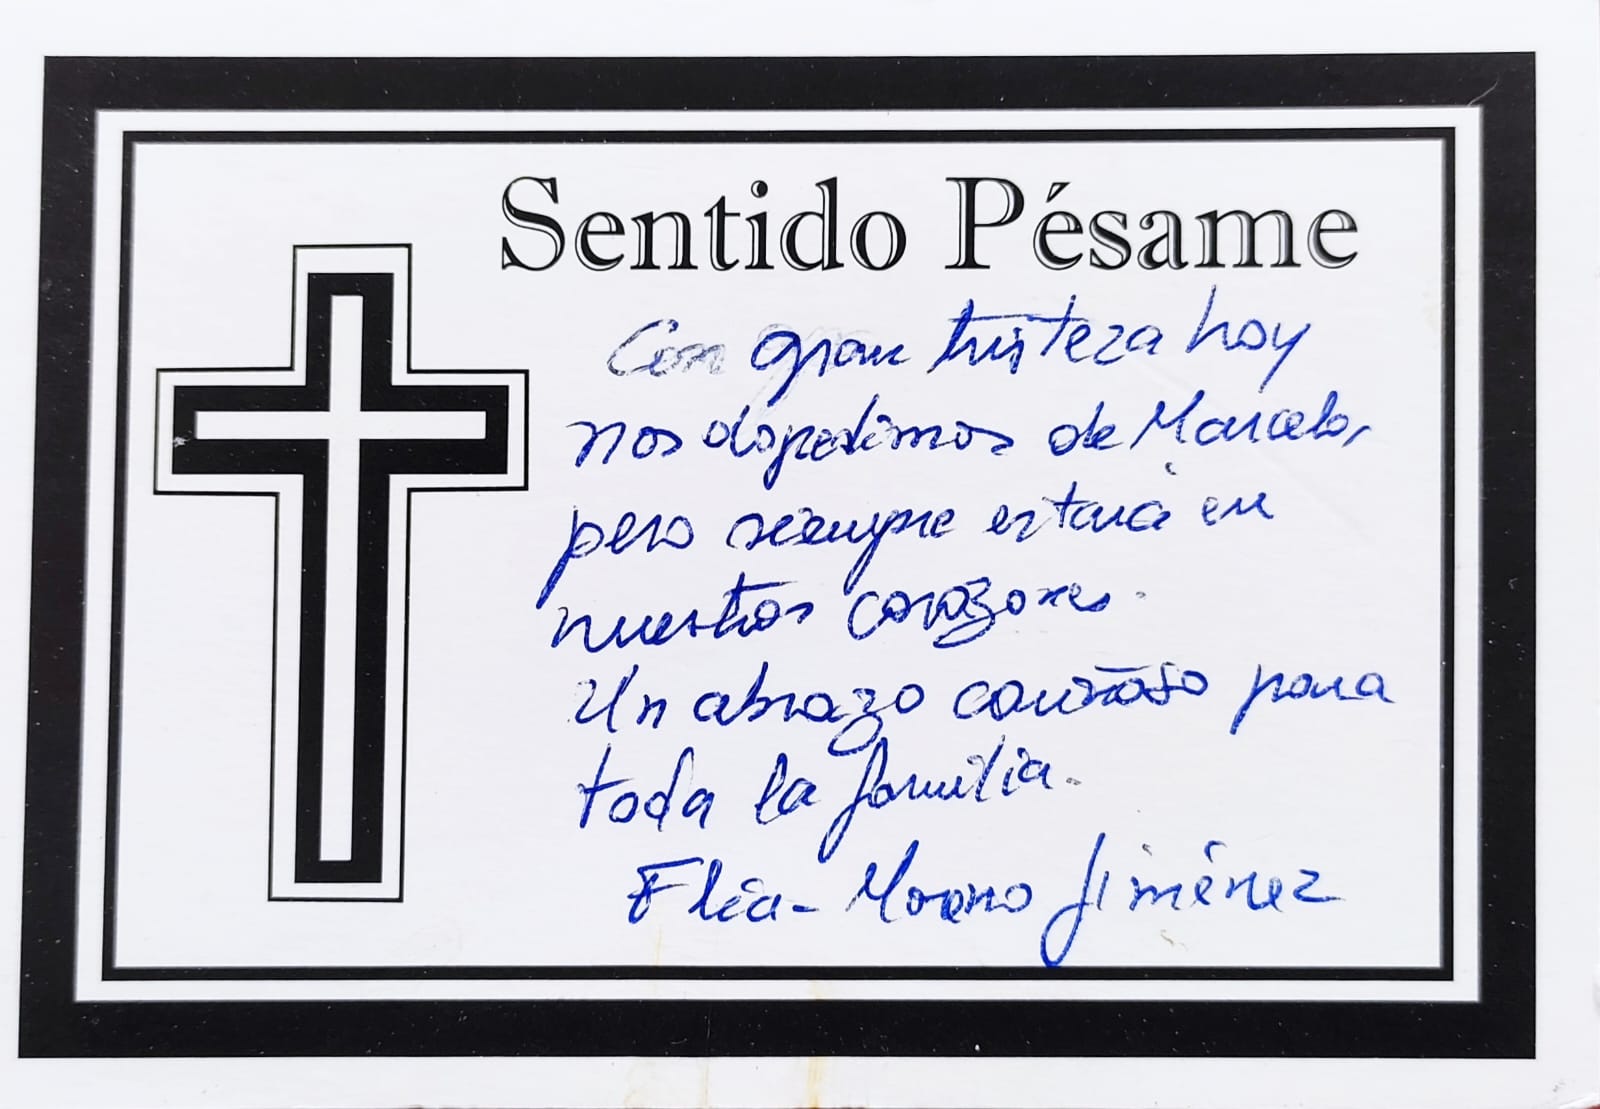 Sentido Pésame
Con gran tristeza hoy
nos despedimos de Marcelo,
pero siempre estará en
nuestros corazones.
Un abrazo cariñoso para
toda la familia.
Flia. Moreno Jiménez